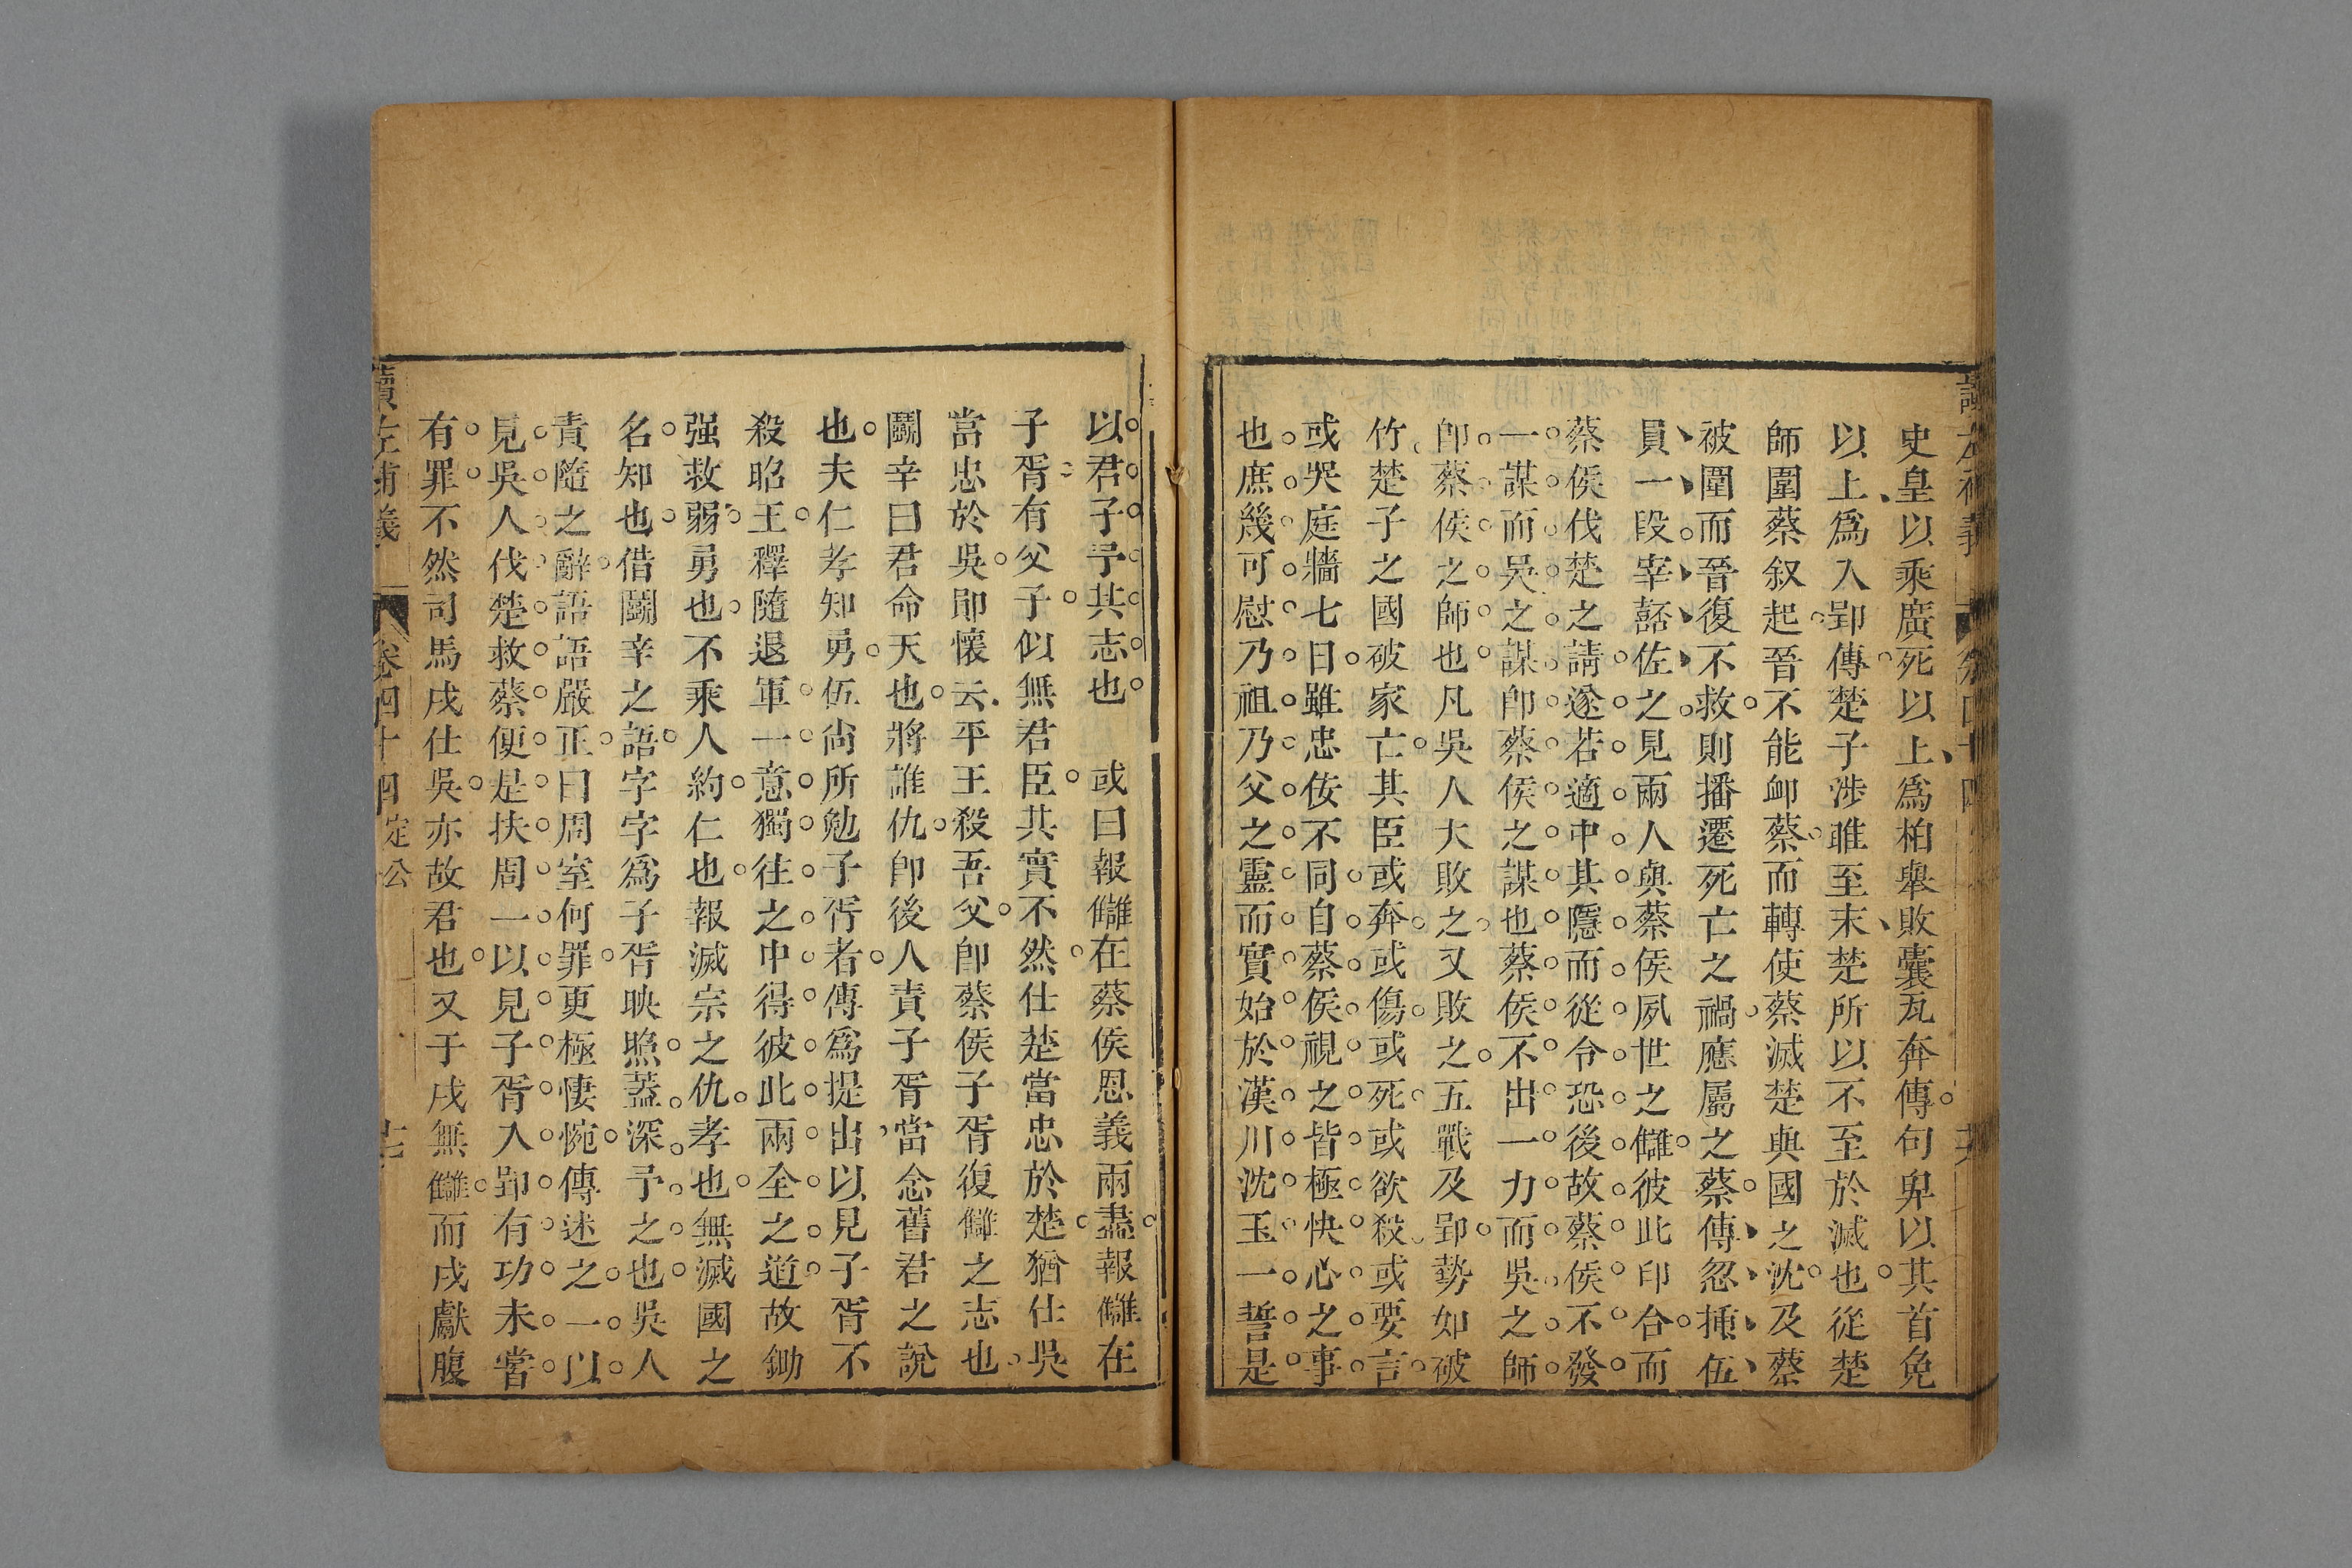 史皇以乘廣死以上爲柏舉敗囊瓦奔傳句卑以其首免
以上爲入郢傳楚子涉雎至末楚所以不至於滅也從楚
師圍蔡叙起晉不能卹蔡而轉使蔡滅楚與國之沈及蔡
被圍而晉復不救則播遷死亡之禍應屬之蔡傳忽插伍
員一段宰嚭佐之見兩人與蔡侯夙世之讎彼此印合而
蔡侯伐楚之請遂若適中其隱而從令恐後故蔡侯不發
一謀而吳之謀卽蔡侯之謀也蔡侯不出一力而吳之師
卽蔡侯之師也凡吳人大敗之又敗之五戰及郢勢如破
竹楚子之國破家亡其臣或奔或傷或死或欲殺或要言
或哭庭牆七日雖忠佞不同自蔡侯視之皆極快心之事
也庶幾可慰乃祖乃父之靈而實始於漢川沈玉一誓是
以君子予其志也　或曰報讎在蔡侯恩義兩盡報讎在
子胥有父子似無君臣其實不然仕楚當忠於楚猶仕吳
當忠於吳卽懷云平王殺吾父卽蔡侯子胥復讎之志也
鬭辛曰君命天也將誰仇卽後人責子胥當念舊君之說
也夫仁孝知勇伍尚所勉子胥者傳爲提出以見子胥不
殺昭王釋隨退軍一意獨往之中得彼此兩全之道故鋤
强救弱勇也不乘人約仁也報滅宗之仇孝也無滅國之
名知也借鬭辛之語字字爲子胥映照蓋深予之也吳人
責隨之辭語語嚴正曰周室何罪更極悽惋傳述之一以
見吳人伐楚救蔡便是扶周一以見子胥入郢有功未嘗
有罪不然司馬戌仕吳亦故君也又于戌無讎而戌獻腹
讀左補義 卷四十四 定公 十七